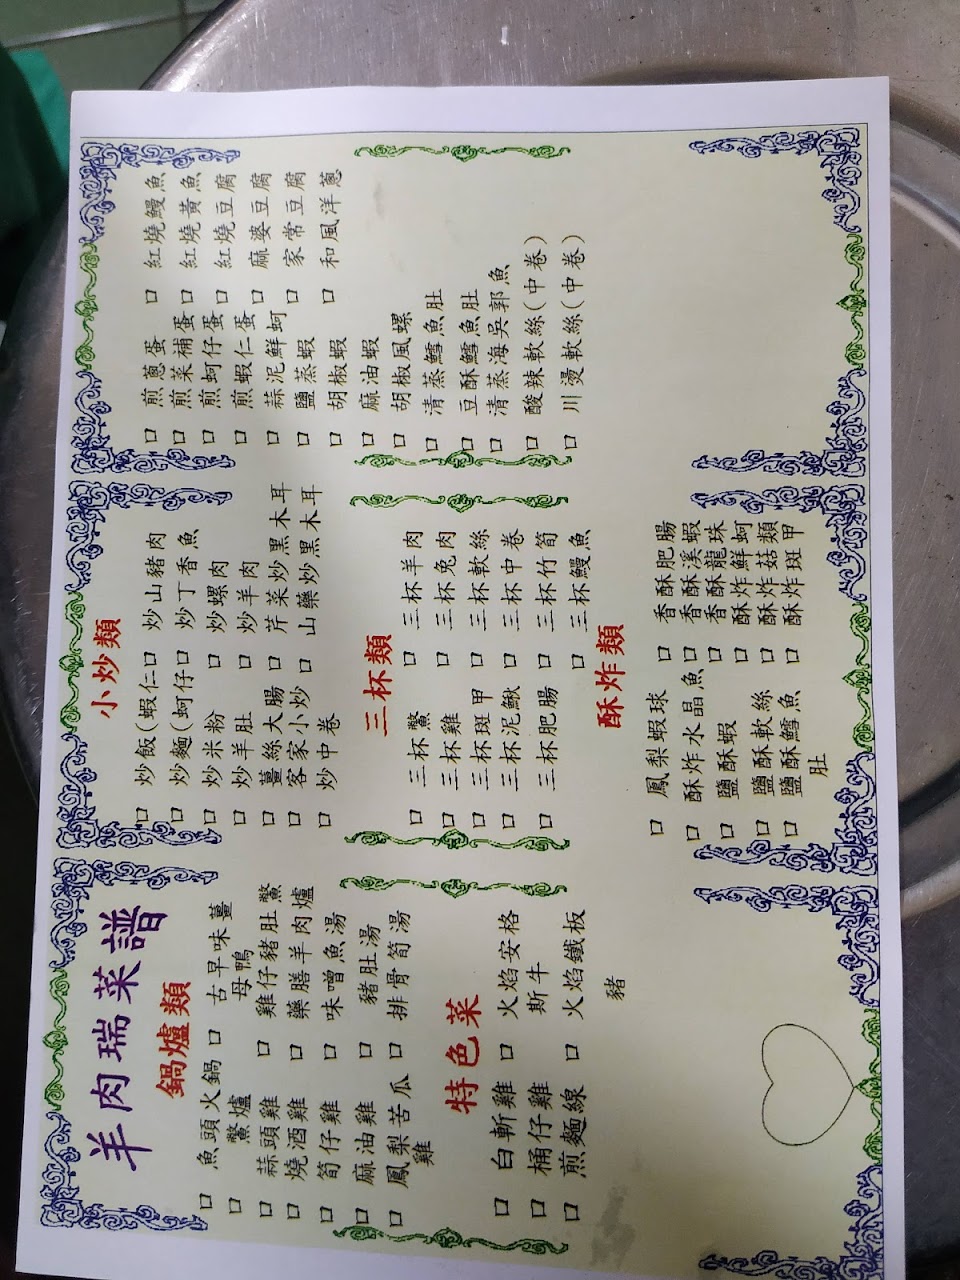 羊肉瑞菜譜
鍋爐類
口 魚頭火鍋 口 古早味薑母鴨
口 鱉爐
口 蒜頭雞 口 雞仔豬肚鱉
口 燒酒雞 口 藥膳羊肉爐
口 筍仔雞 口 味噌魚湯
口 麻油雞 口 豬肚湯
口 鳳梨苦瓜雞 口 排骨筍湯
特色菜
口 白斬雞 口 火焰安格斯牛
口 桶仔雞
口 煎麵線 口 火焰鐵板豬
小炒類
口 炒飯(蝦仁 口 炒山豬肉
口 炒麵(蚵仔 口 炒丁香魚
口 炒米粉 口 炒螺肉
口 炒羊肚 口 炒羊肉
口 薑絲大腸 口 芹菜炒黑木耳
口 客家小炒 口 山藥炒黑木耳
口 炒中卷
三杯類
口 三杯鱉 口 三杯羊肉
口 三杯雞 口 三杯兔肉
口 三杯斑甲 口 三杯軟絲
口 三杯泥鰍 口 三杯中卷
口 三杯肥腸 口 三杯竹筍
口 三杯鰻魚
酥炸類
口 鳳梨蝦球 口 香酥肥腸
口 酥炸水晶魚 口 香酥溪蝦
口 鹽酥蝦 口 香酥龍珠
口 鹽酥軟絲 口 酥炸鮮蚵
口 鹽酥鱈魚肚 口 酥炸菇類
口 酥炸斑甲
口 煎蔥蛋 口 紅燒鰻魚
口 煎菜補蛋 口 紅燒黃魚
口 煎蚵仔蛋 口 紅燒豆腐
口 煎蝦仁蛋 口 麻婆豆腐
口 蒜泥鮮蚵 口 家常豆腐
口 鹽蒸蝦 口 和風洋蔥
口 胡椒蝦
口 麻油蝦
口 胡椒風螺
口 清蒸鱈魚肚
口 豆酥鱈魚肚
口 清蒸海吳郭魚
口 酸辣軟絲(中卷)
口 川燙軟絲(中卷)